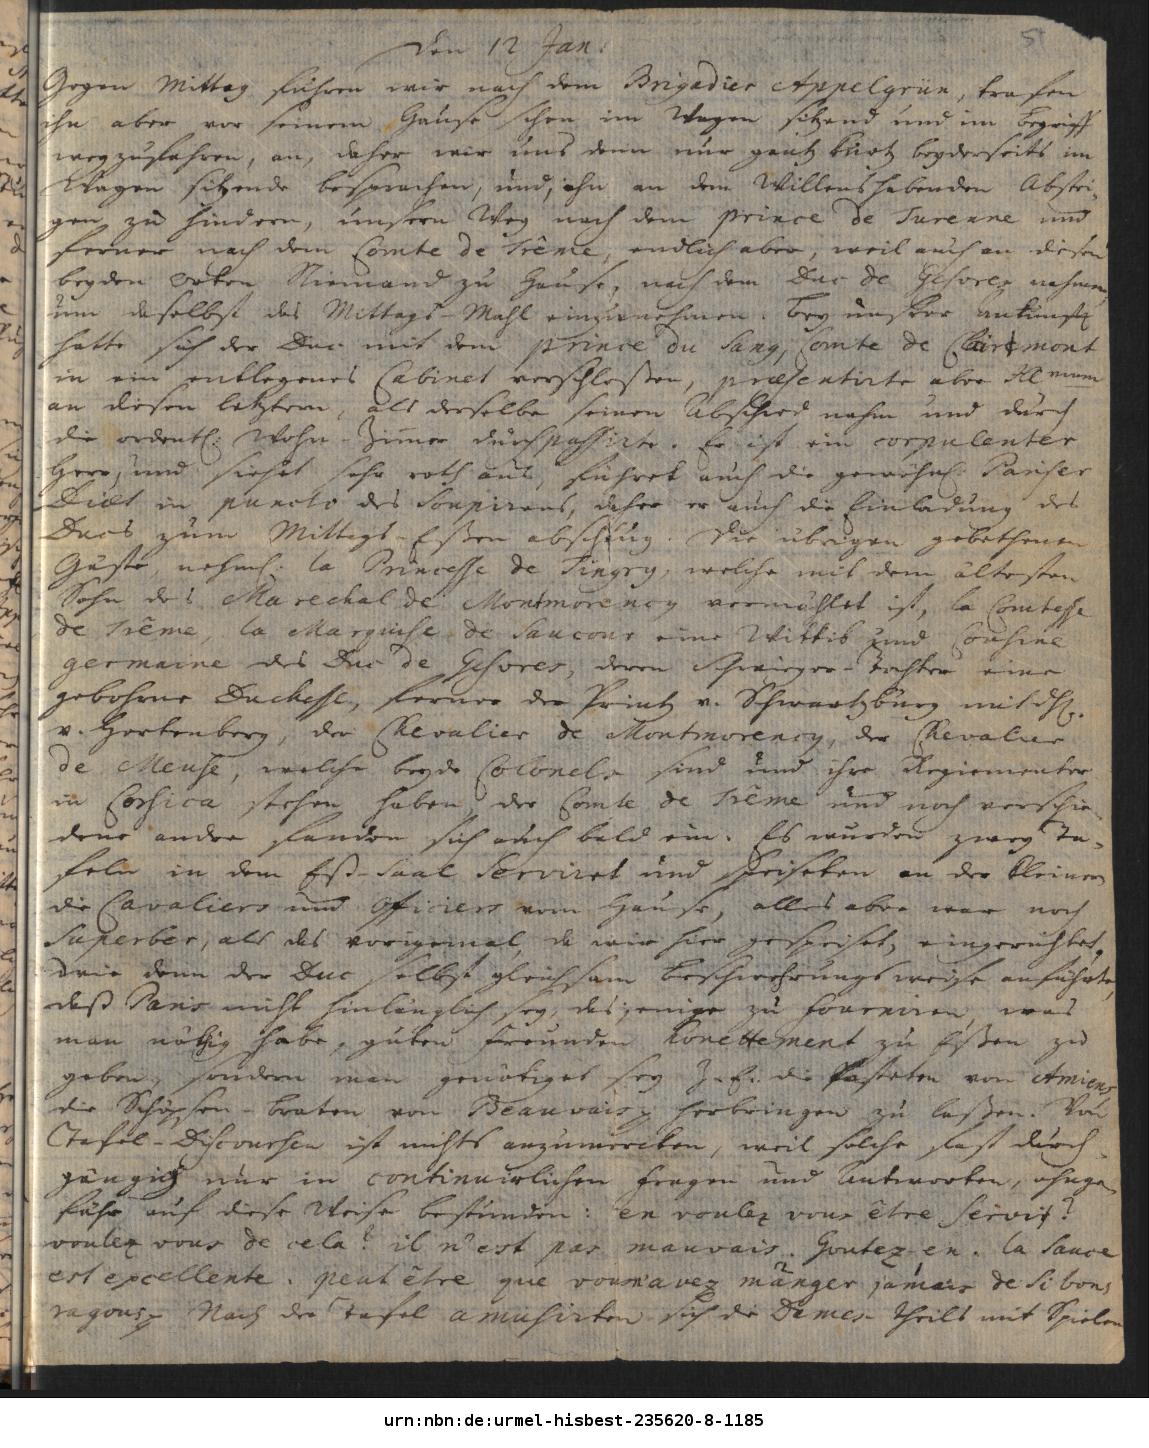 5
Den 12 Jan:
Gegen Mittag fuhren wir nach dem Brigadier Appelgrün, trafen
ihn aber vor seinem Hause schon im Wagen sitzend und im Begriff
wegzufahren, an, daher wir uns denn nur gantz kurtz beyderseits im
Wagen sitzende besprachen, und, ihn an dem Willens habenden Abstei-
gen zu hindern, unsern Weg nach dem prince de Turenne und
ferner nach dem Comte de Trême, endlich aber, weil auch an diesen
beyden orten Niemand zu Hause, nach dem Duc de Gesvres nahmen,
um daselbst das Mittags-Mahl einzunehmen. Bey unsrer ankunfft
hatte sich der Duc mit dem prince du Sang, Comte de Clairmont
in ein entlegenes Cabinet verschloßen, præsentirte aber
an diesen letztern, als derselbe seinen Abschied nahm und durch
die ordentl: Wohn-Zimer durchpassirte. Er ist ein corpulenter
Herr, und siehet sehr roth aus, führet auch die gewöhnl: Pariser
Diæt in puncto des Soupirens, daher er auch die Einladung des
Ducs zum Mittags-Eßen abschlug. Die übrigen gebethenen
Gäste, nehml: la Princesse de Tingry, welche mit dem ältesten
Sohn des Marechal de Montmorency vermählet ist, la Comtesse
de Trême, la Marquise de Saucour eine Wittib und Cousine
germaine des Duc de Gesvres, deren Schwieger-Tochter eine
gebohrne Duchesse, ferner der Printz v. Schwartzburg mit dH.
v. Hertenberg, der Chevalier de Montmorency, der Chevalier
de Meuse, welche beyde Colonels sind und ihre Regimenter
in Corsica stehen haben, der Comte de Trême und noch verschie-
dene andre fanden sich auch bald ein. Es wurden zwey Ta-
feln in dem Eß-Saal serviret und speiseten an der kleinen
die Cavaliers und Officiers vom Hause, alles aber war noch
superber, als das vorigemal, da wir hier gespeiset, eingerichtet,
wie denn der Duc selbst gleichsam beschwehrungs weise anführte,
daß Paris nicht hinlänglich sey, dasjenige zu fourniren, was
man nöthig habe, guten Freunden honettement zu Eßen zu
geben, sondern man genötiget sey z.E. die Pasteten von Amiens
die Schöpsen-braten von Beauvais herbringen zu laßen. Von
Tafel-Discoursen ist nichts anzumercken, weil solche fast durch-
gängig nur in continuirlichen Fragen und Antworten, ohnge-
fähr auf diese Weise bestunden: en voulez vous être servis?
voulez vous de cela? il n'est pas mauvais. Goutez-en. la Sauce
est excellente. peut être que vous n'avez mânger jamais de si bons
ragouts. Nach der Tafel amusirten sich die Dames theils mit Spielen
urn:nbn:de:urmel-hisbest-235620-8-1185